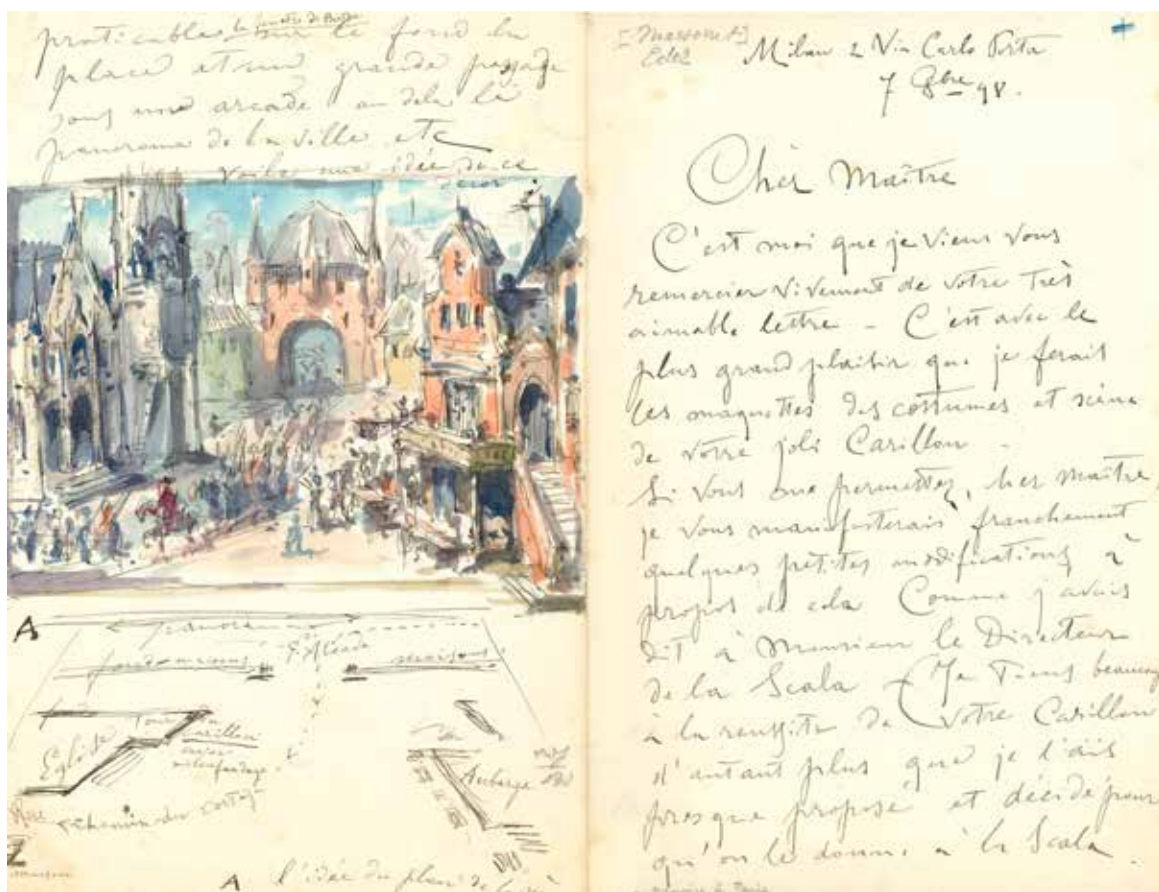 praticables sur le fond la
place et une grande passage
sous une arcade au delà le
panorama de la ville etc
voila une idée de ce
décor
A
panora
fond maisons l'Arcade maisons
Tour du
carillon
Eglise
avec
échafaudage
Auberge
chemin du cortège
Rue
A l'idée du plan de la
[Massenet]
Milan 2 Via Carlo Porta
7 8bre 98.
Cher Maître
C'est moi que je viens vous
remercier vivement de votre très
aimable lettre – C'est avec le
plus grand plaisir que je ferais
les maquettes des costumes et scène
de votre joli Carillon –
Si vous me permettez, cher maître,
je vous manifesterais franchement
quelques petites modifications à
propos de cela Comme j'avais
dit à Monsieur le Directeur
de la Scala – Je tiens beaucoup
à la reussite de votre Carillon
d'autant plus que je l'ais
presque proposé et décidé pour
qu'on le donne à la Scala.